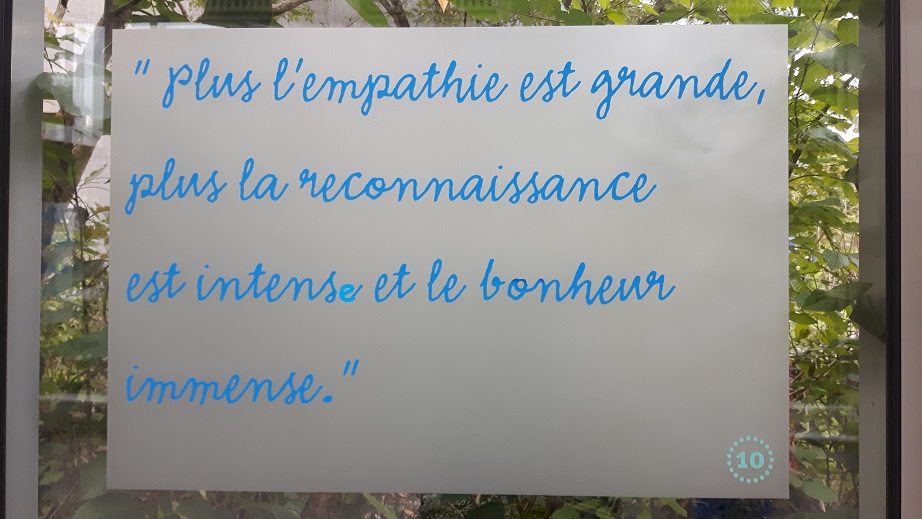 " Plus l'empathie est grande,
plus la reconnaissance
est intense et le bonheur
immense."
10